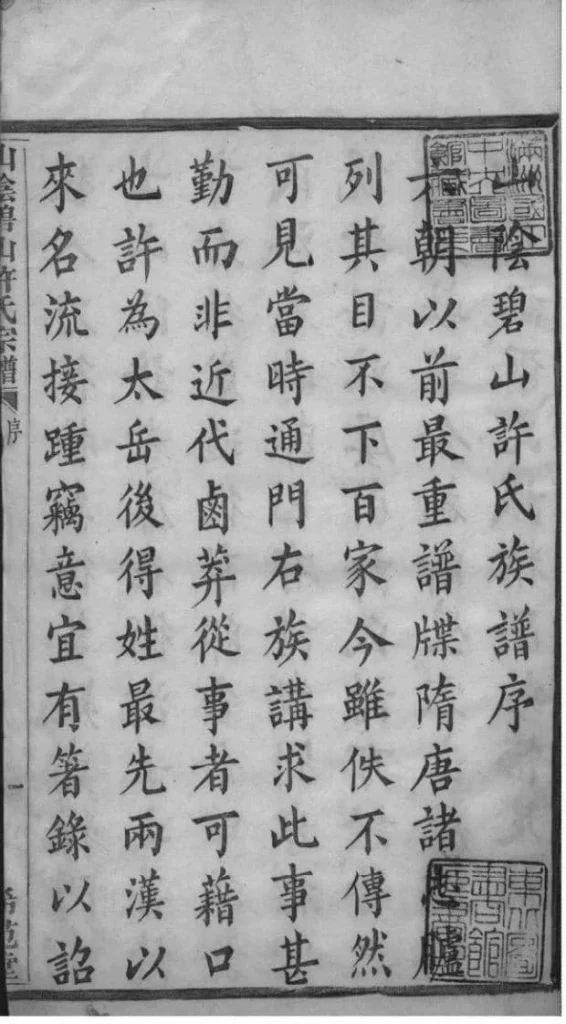 山陰碧山許氏族譜序
六朝以前最重譜牒隋唐諸志臚
列其目不下百家今雖佚不傳然
可見當時通門右族講求此事甚
勤而非近代鹵莽從事者可藉口
也許為太岳後得姓最先兩漢以
來名流接踵竊意宜有箸錄以詔
山陰碧山許氏宗譜
序
一